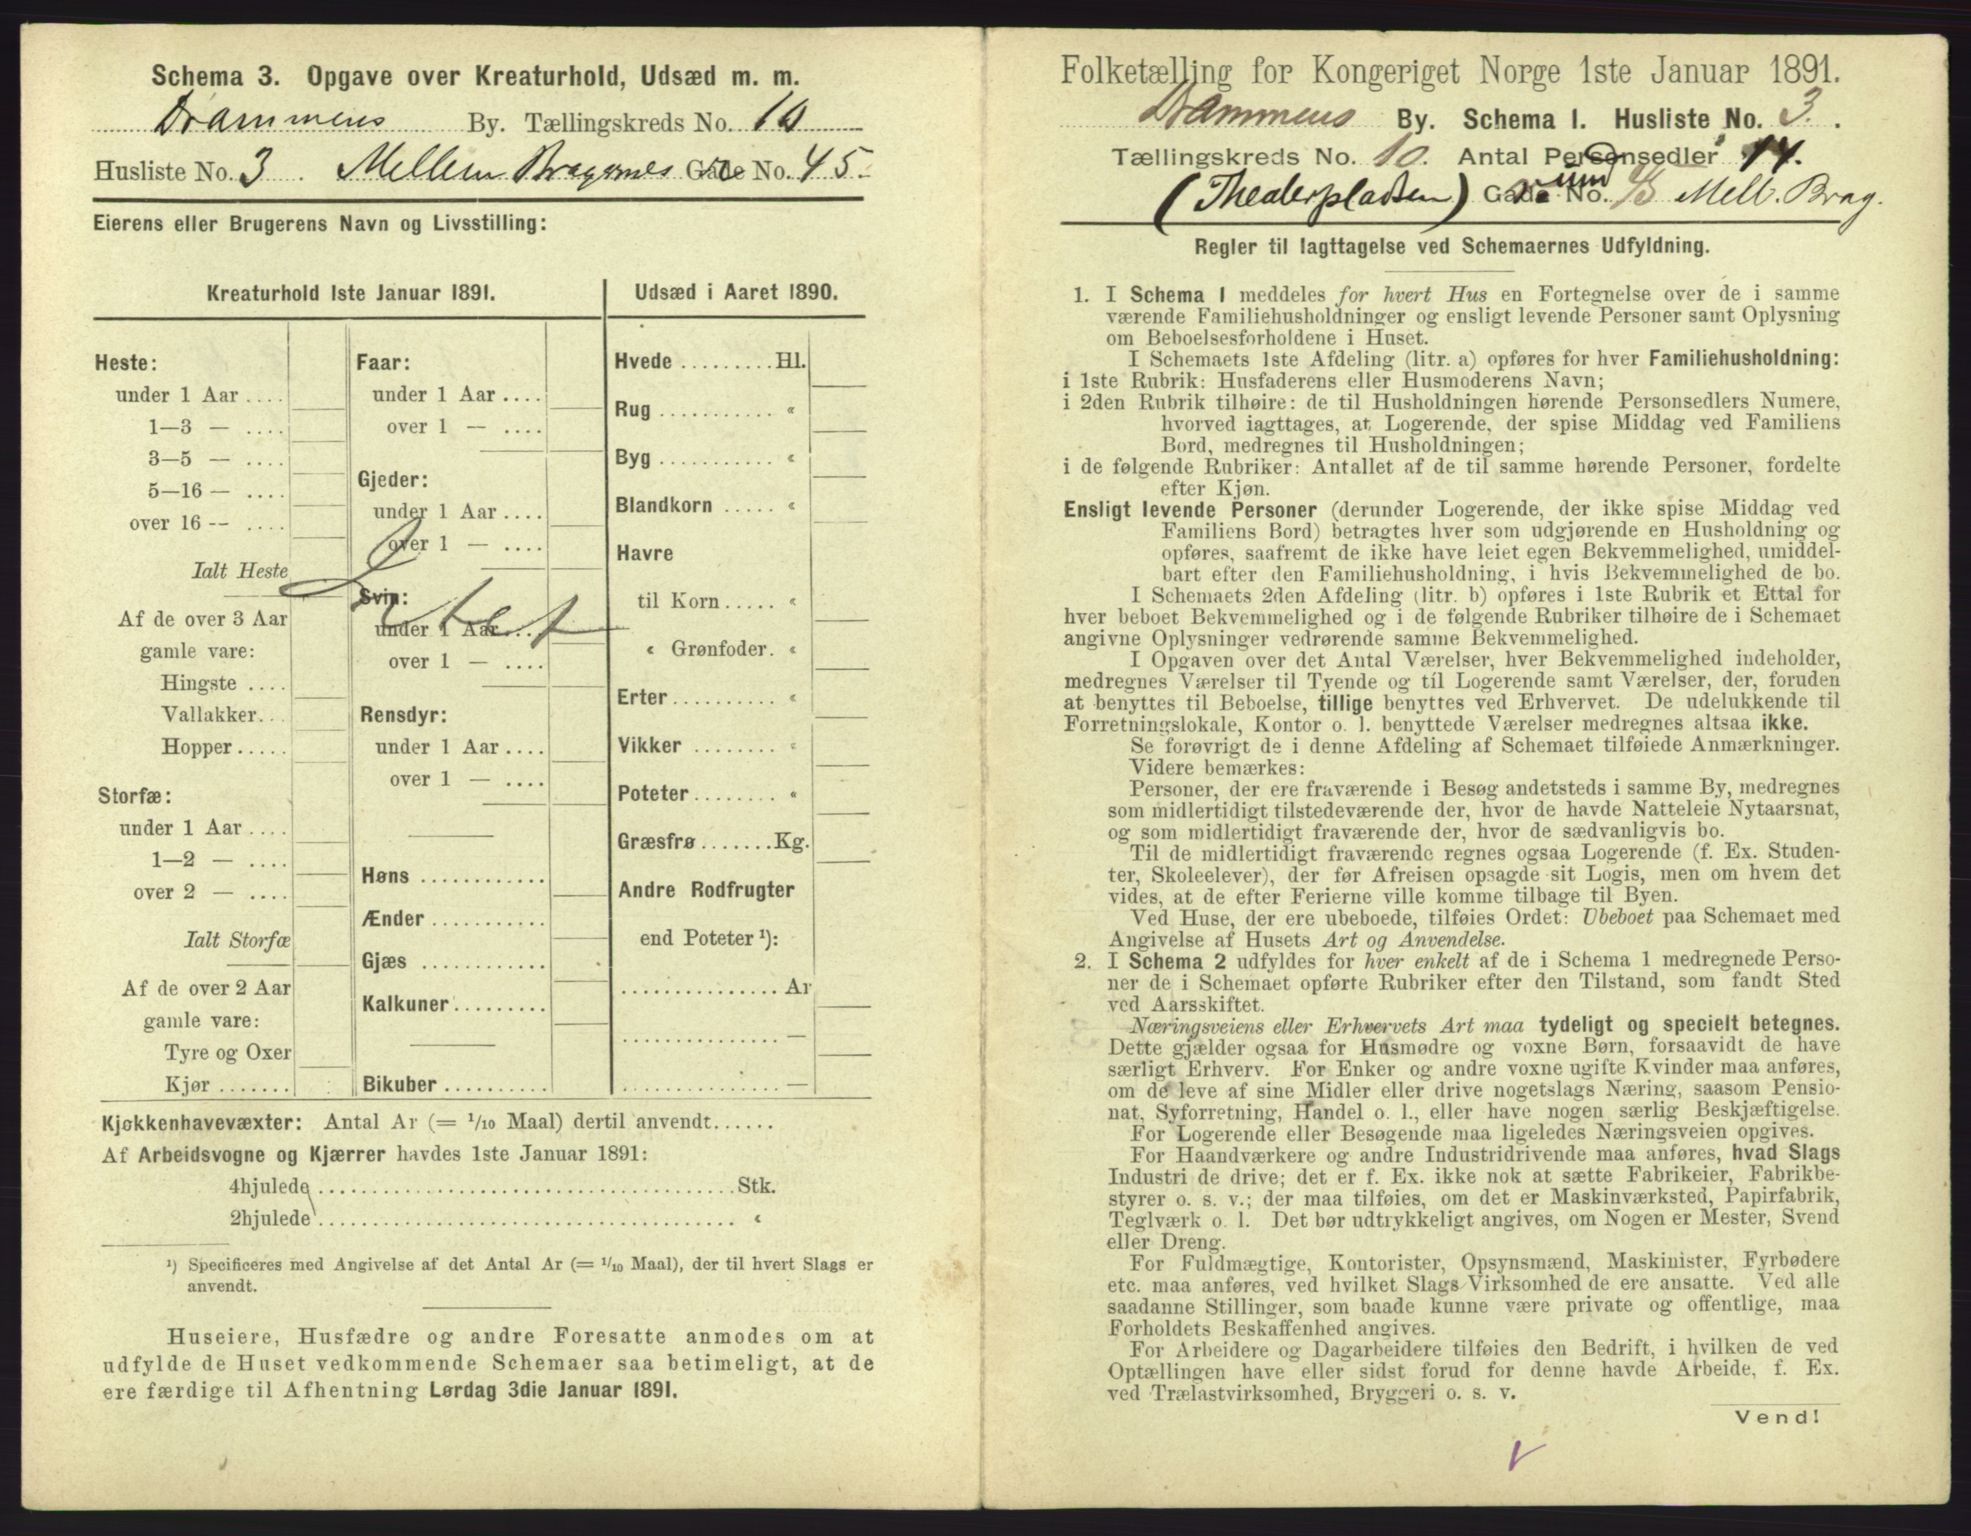 Schema 3. Opgave over Kreaturhold, Udsæd m. m.
Drammens By. Tællingskreds No. 10
Husliste No. 3 Mellem Bragernes Gade No. 45.
Eierens eller Brugerens Navn og Livsstilling:
Kreaturhold 1ste Januar 1891.
Heste:
under 1 Aar ....
1—3 — ....
3—5 — ....
5—16 — ....
over 16 -- ....
Ialt Heste
Af de over 3 Aar
gamle vare:
Hingste ....
Vallakker...
Hopper.....
Storfæ:
under 1 Aar ....
1—2 — ....
over 2 — ....
Ialt Storfæ
Af de over 2 Aar
gamle vare:
Tyre og Oxer
Kjør .......
Faar:
under 1 Aar ....
over 1 — ....
Gjeder:
under 1 Aar ....
over 1 — ....
Svin:
under 1 Aar ....
over 1 — ....
Rensdyr:
under 1 Aar ....
over 1 — ....
Høns ............
Ænder ...........
Gjæs ............
Kalkuner.........
Bikuber ..........
Intet
Udsæd i Aaret 1890.
Hvede .........Hl.
Rug ........... «
Byg ........... «
Blandkorn ..... «
Havre
til Korn..... «
« Grønfoder. «
Erter .......... «
Vikker ........ «
Poteter........ «
Græsfrø.......Kg.
Andre Rodfrugter
end Poteter ¹):
...............Ar
............... —
............... —
Kjøkkenhavevæxter: Antal Ar (= 1/10 Maal) dertil anvendt......
Af Arbeidsvogne og Kjærrer havdes 1ste Januar 1891:
4hjulede ....................................... Stk.
2hjulede ....................................... «
¹) Specificeres med Angivelse af det Antal Ar (= 1/10 Maal), der til hvert Slags er
anvendt.
Huseiere, Husfædre og andre Foresatte anmodes om at
udfylde de Huset vedkommende Schemaer saa betimeligt, at de
ere færdige til Afhentning Lørdag 3die Januar 1891.
Folketælling for Kongeriget Norge 1ste Januar 1891.
Drammens By. Schema 1. Husliste No. 3.
Tællingskreds No. 10. Antal Personsedler 14.
(Theaterpladsen) Gade No. 45 Mell. Brag.
Regler til Iagttagelse ved Schemaernes Udfyldning.
1. I Schema 1 meddeles for hvert Hus en Fortegnelse over de i samme
værende Familiehusholdninger og ensligt levende Personer samt Oplysning
om Beboelsesforholdene i Huset.
I Schemaets 1ste Afdeling (litr. a) opføres for hver Familiehusholdning:
i 1ste Rubrik: Husfaderens eller Husmoderens Navn;
i 2den Rubrik tilhøire: de til Husholdningen hørende Personsedlers Numere,
hvorved iagttages, at Logerende, der spise Middag ved Familiens
Bord, medregnes til Husholdningen;
i de følgende Rubriker: Antallet af de til samme hørende Personer, fordelte
efter Kjøn.
Ensligt levende Personer (derunder Logerende, der ikke spise Middag ved
Familiens Bord) betragtes hver som udgjørende en Husholdning og
opføres, saafremt de ikke have leiet egen Bekvemmelighed, umiddel-
bart efter den Familiehusholdning, i hvis Bekvemmelighed de bo.
I Schemaets 2den Afdeling (litr. b) opføres i 1ste Rubrik et Ettal for
hver beboet Bekvemmelighed og i de følgende Rubriker tilhøire de i Schemaet
angivne Oplysninger vedrørende samme Bekvemmelighed.
I Opgaven over det Antal Værelser, hver Bekvemmelighed indeholder,
medregnes Værelser til Tyende og til Logerende samt Værelser, der, foruden
at benyttes til Beboelse, tillige benyttes ved Erhvervet. De udelukkende til
Forretningslokale, Kontor o. l. benyttede Værelser medregnes altsaa ikke.
Se forøvrigt de i denne Afdeling af Schemaet tilføiede Anmærkninger.
Videre bemærkes:
Personer, der ere fraværende i Besøg andetsteds i samme By, medregnes
som midlertidigt tilstedeværende der, hvor de havde Natteleie Nytaarsnat,
og som midlertidigt fraværende der, hvor de sædvanligvis bo.
Til de midlertidigt fraværende regnes ogsaa Logerende (f. Ex. Studen-
ter, Skoleelever), der før Afreisen opsagde sit Logis, men om hvem det
vides, at de efter Ferierne ville komme tilbage til Byen.
Ved Huse, der ere ubeboede, tilføies Ordet: Ubeboet paa Schemaet med
Angivelse af Husets Art og Anvendelse.
2. I Schema 2 udfyldes for hver enkelt af de i Schema 1 medregnede Perso-
ner de i Schemaet opførte Rubriker efter den Tilstand, som fandt Sted
ved Aarsskiftet.
Næringsveiens eller Erhvervets Art maa tydeligt og specielt betegnes.
Dette gjælder ogsaa for Husmødre og voxne Børn, forsaavidt de have
særligt Erhverv. For Enker og andre voxne ugifte Kvinder maa anføres,
om de leve af sine Midler eller drive nogetslags Næring, saasom Pensio-
nat, Syforretning, Handel o. l., eller have nogen særlig Beskjæftigelse.
For Logerende eller Besøgende maa ligeledes Næringsveien opgives.
For Haandværkere og andre Industridrivende maa anføres, hvad Slags
Industri de drive; det er f. Ex. ikke nok at sætte Fabrikeier, Fabrikbe-
styrer o. s. v.; der maa tilføies, om det er Maskinværksted, Papirfabrik,
Teglværk o. l. Det bør udtrykkeligt angives, om Nogen er Mester, Svend
eller Dreng.
For Fuldmægtige, Kontorister, Opsynsmænd, Maskinister, Fyrbødere
etc. maa anføres, ved hvilket Slags Virksomhed de ere ansatte. Ved alle
saadanne Stillinger, som baade kunne være private og offentlige, maa
Forholdets Beskaffenhed angives.
For Arbeidere og Dagarbeidere tilføies den Bedrift, i hvilken de ved
Optællingen have eller sidst forud for denne havde Arbeide, f. Ex.
ved Trælastvirksomhed, Bryggeri o. s. v.
Vend!